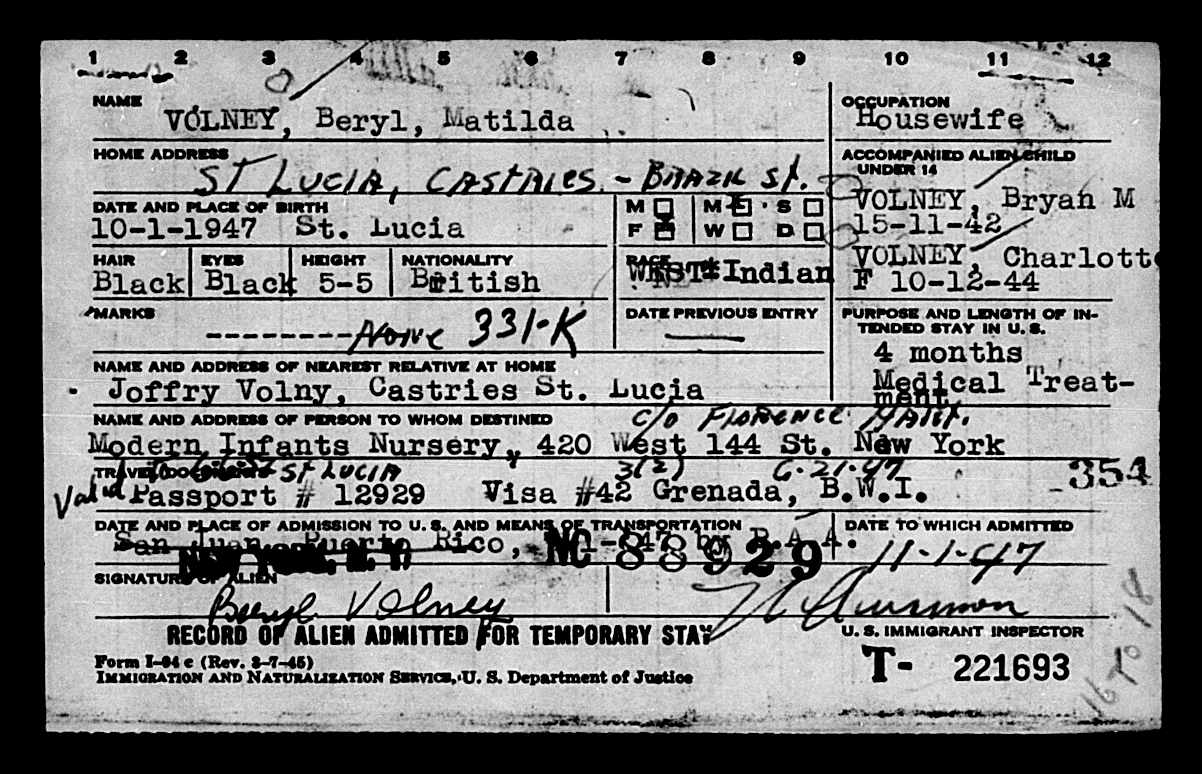 1 2 3 4 5 6 7 8 9 10 11 12
NAME
VOLNEY, Beryl, Matilda
OCCUPATION
Housewife
HOME ADDRESS
ST LUCIA, CASTRIES - BRAZIL St.
ACCOMPANIED ALIEN CHILD
UNDER 14
VOLNEY, Bryan M
15-11-42
VOLNEY, Charlotte
F 10-12-44
DATE AND PLACE OF BIRTH
10-1-1947 St. Lucia
M M S
F W D
HAIR EYES HEIGHT NATIONALITY
Black Black 5-5 British
RACE
West Indian
MARKS
--------None 331-K
DATE PREVIOUS ENTRY
PURPOSE AND LENGTH OF IN-
TENDED STAY IN U. S.
4 months
Medical Treat-
ment.
NAME AND ADDRESS OF NEAREST RELATIVE AT HOME
Joffry Volny, Castries St. Lucia
NAME AND ADDRESS OF PERSON TO WHOM DESTINED
c/o FLORENCE
Modern Infants Nursery, 420 West 144 St. New York
TRAVEL DOCUMENTS ST LUCIA 3(2) 6-21-47
Valid
Passport # 12929 Visa #42 Grenada, B.W.I.
354
DATE AND PLACE OF ADMISSION TO U. S. AND MEANS OF TRANSPORTATION
San Juan, Puerto Rico, by P.A.A.
NEW YORK, N. Y.
NO 88929
DATE TO WHICH ADMITTED
11-1-47
SIGNATURE OF ALIEN
Beryl Volney
RECORD OF ALIEN ADMITTED FOR TEMPORARY STAY
U. S. IMMIGRANT INSPECTOR
Form I-94 c (Rev. 3-7-45)
IMMIGRATION AND NATURALIZATION SERVICE, U. S. Department of Justice
T- 221693
16 to 18